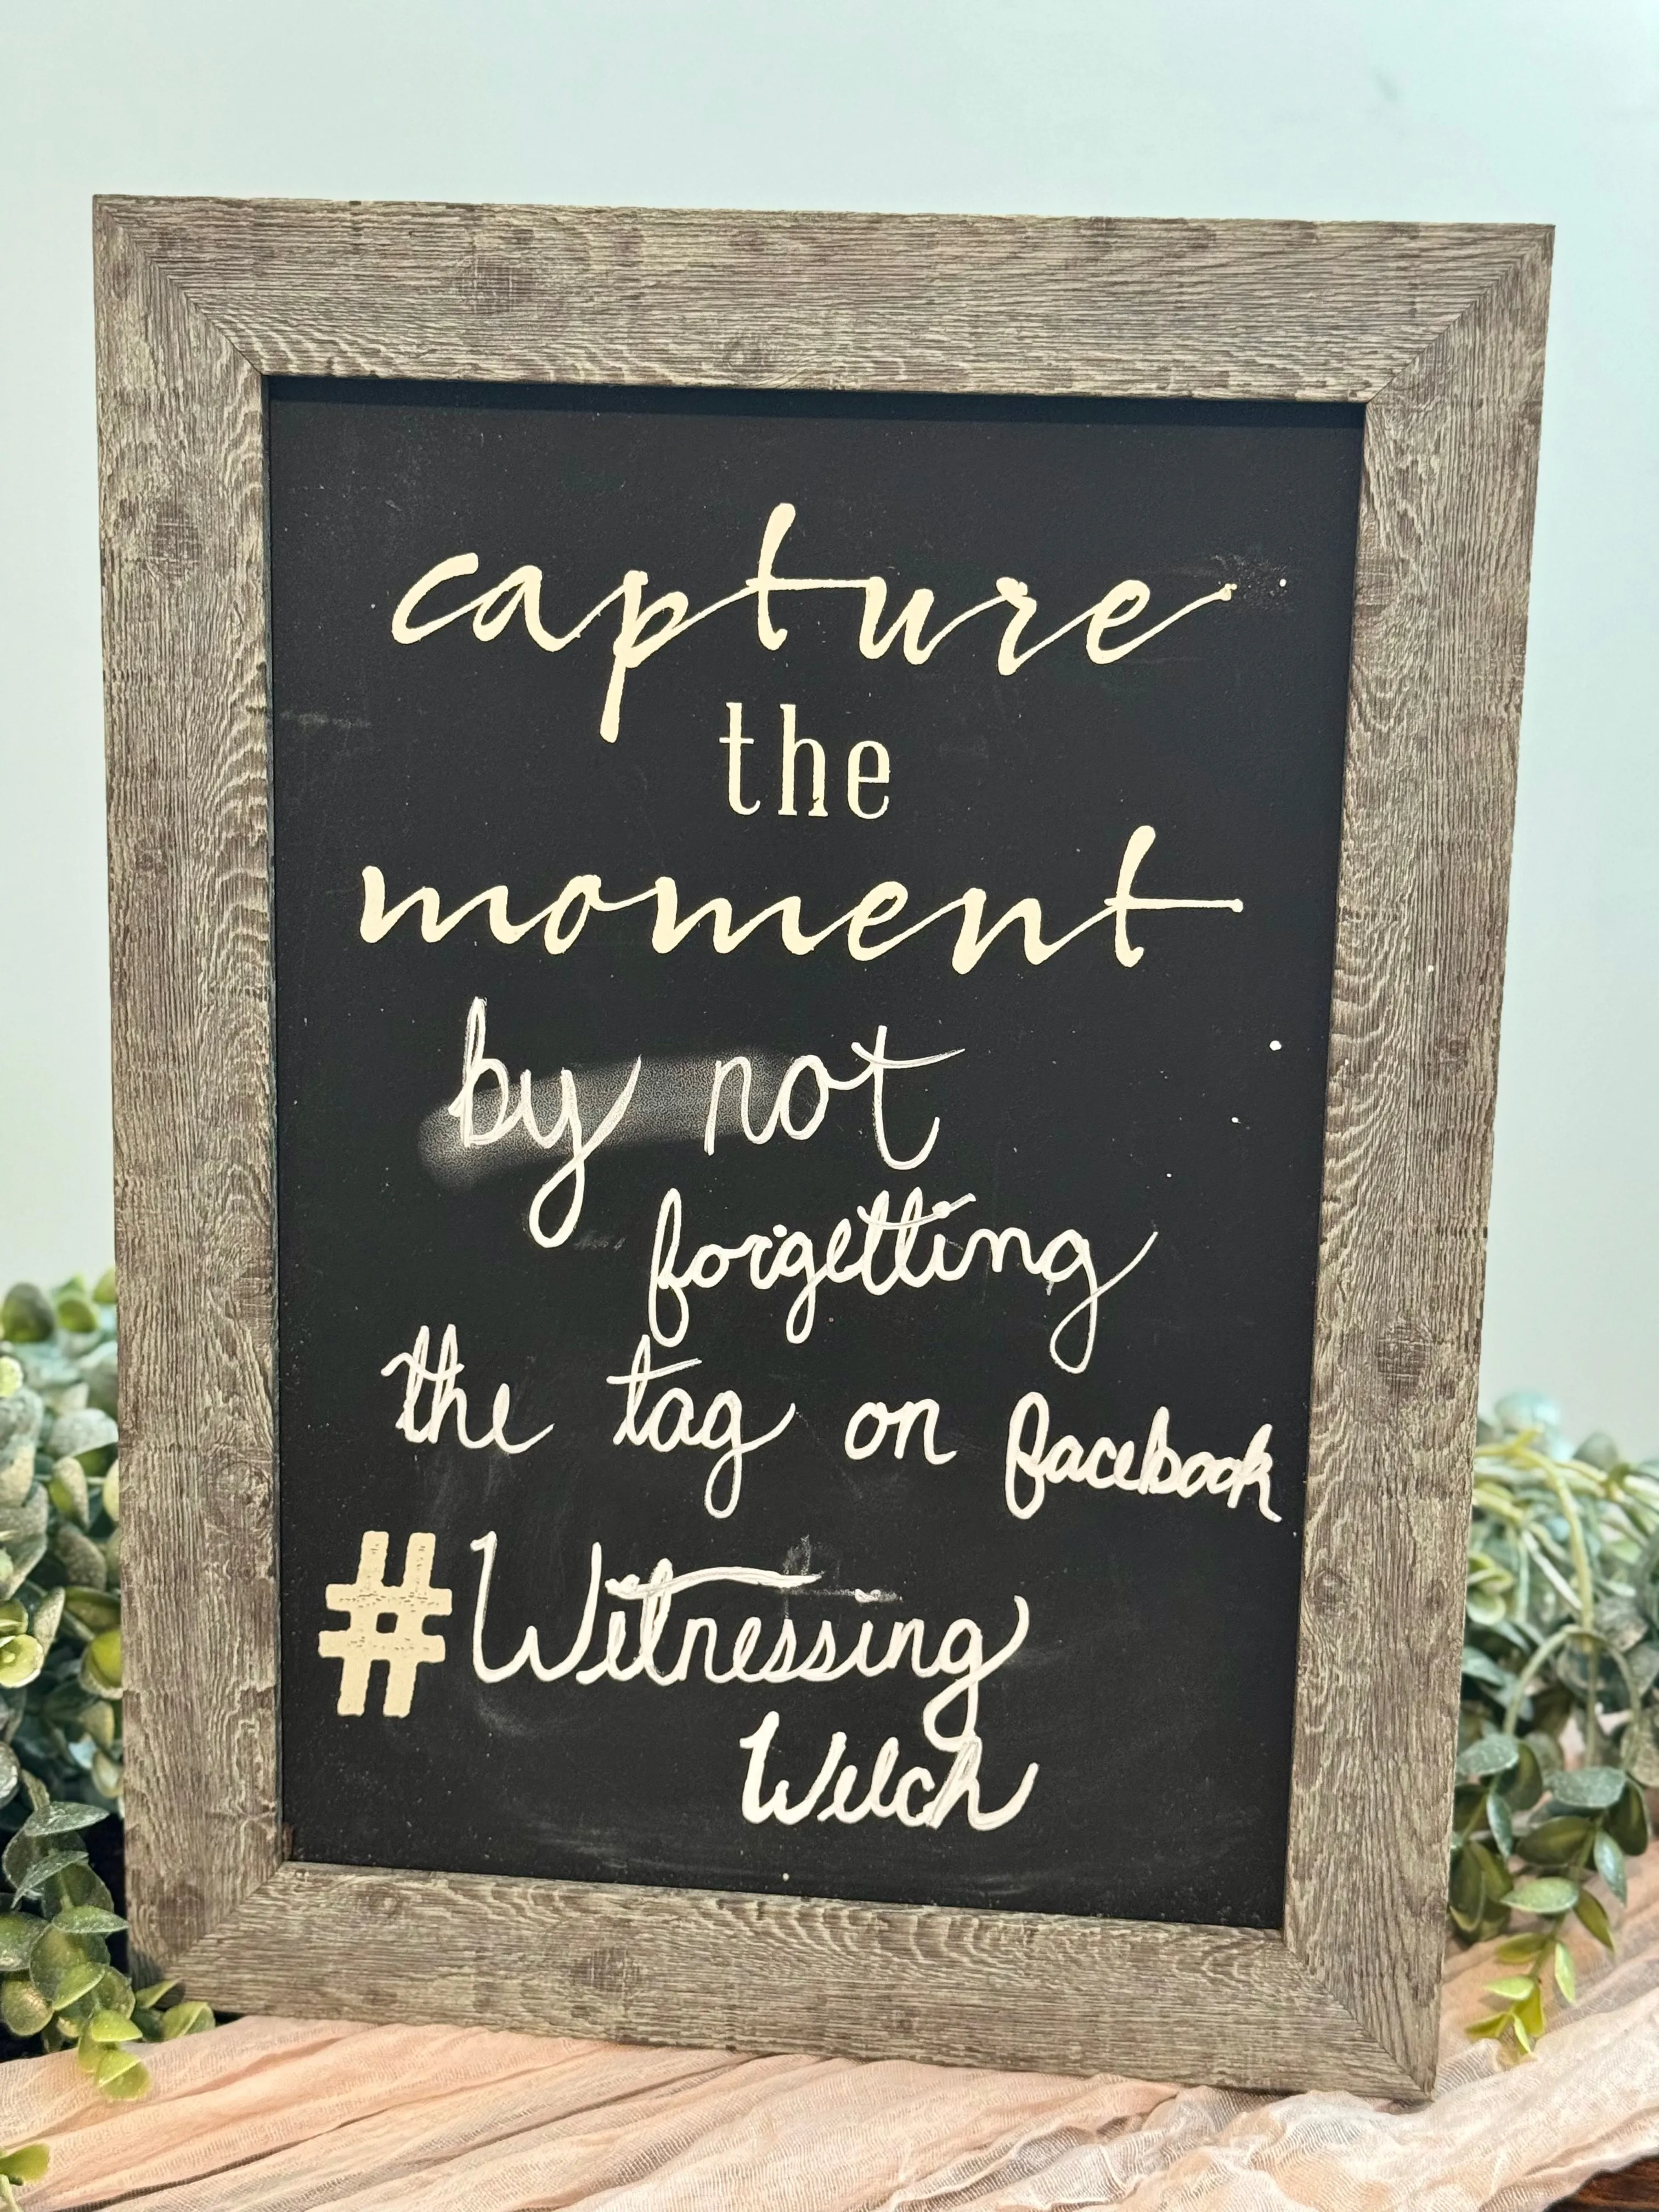 capture
the
moment
by not
forgetting
the tag on facebook
#Witnessing
Welch